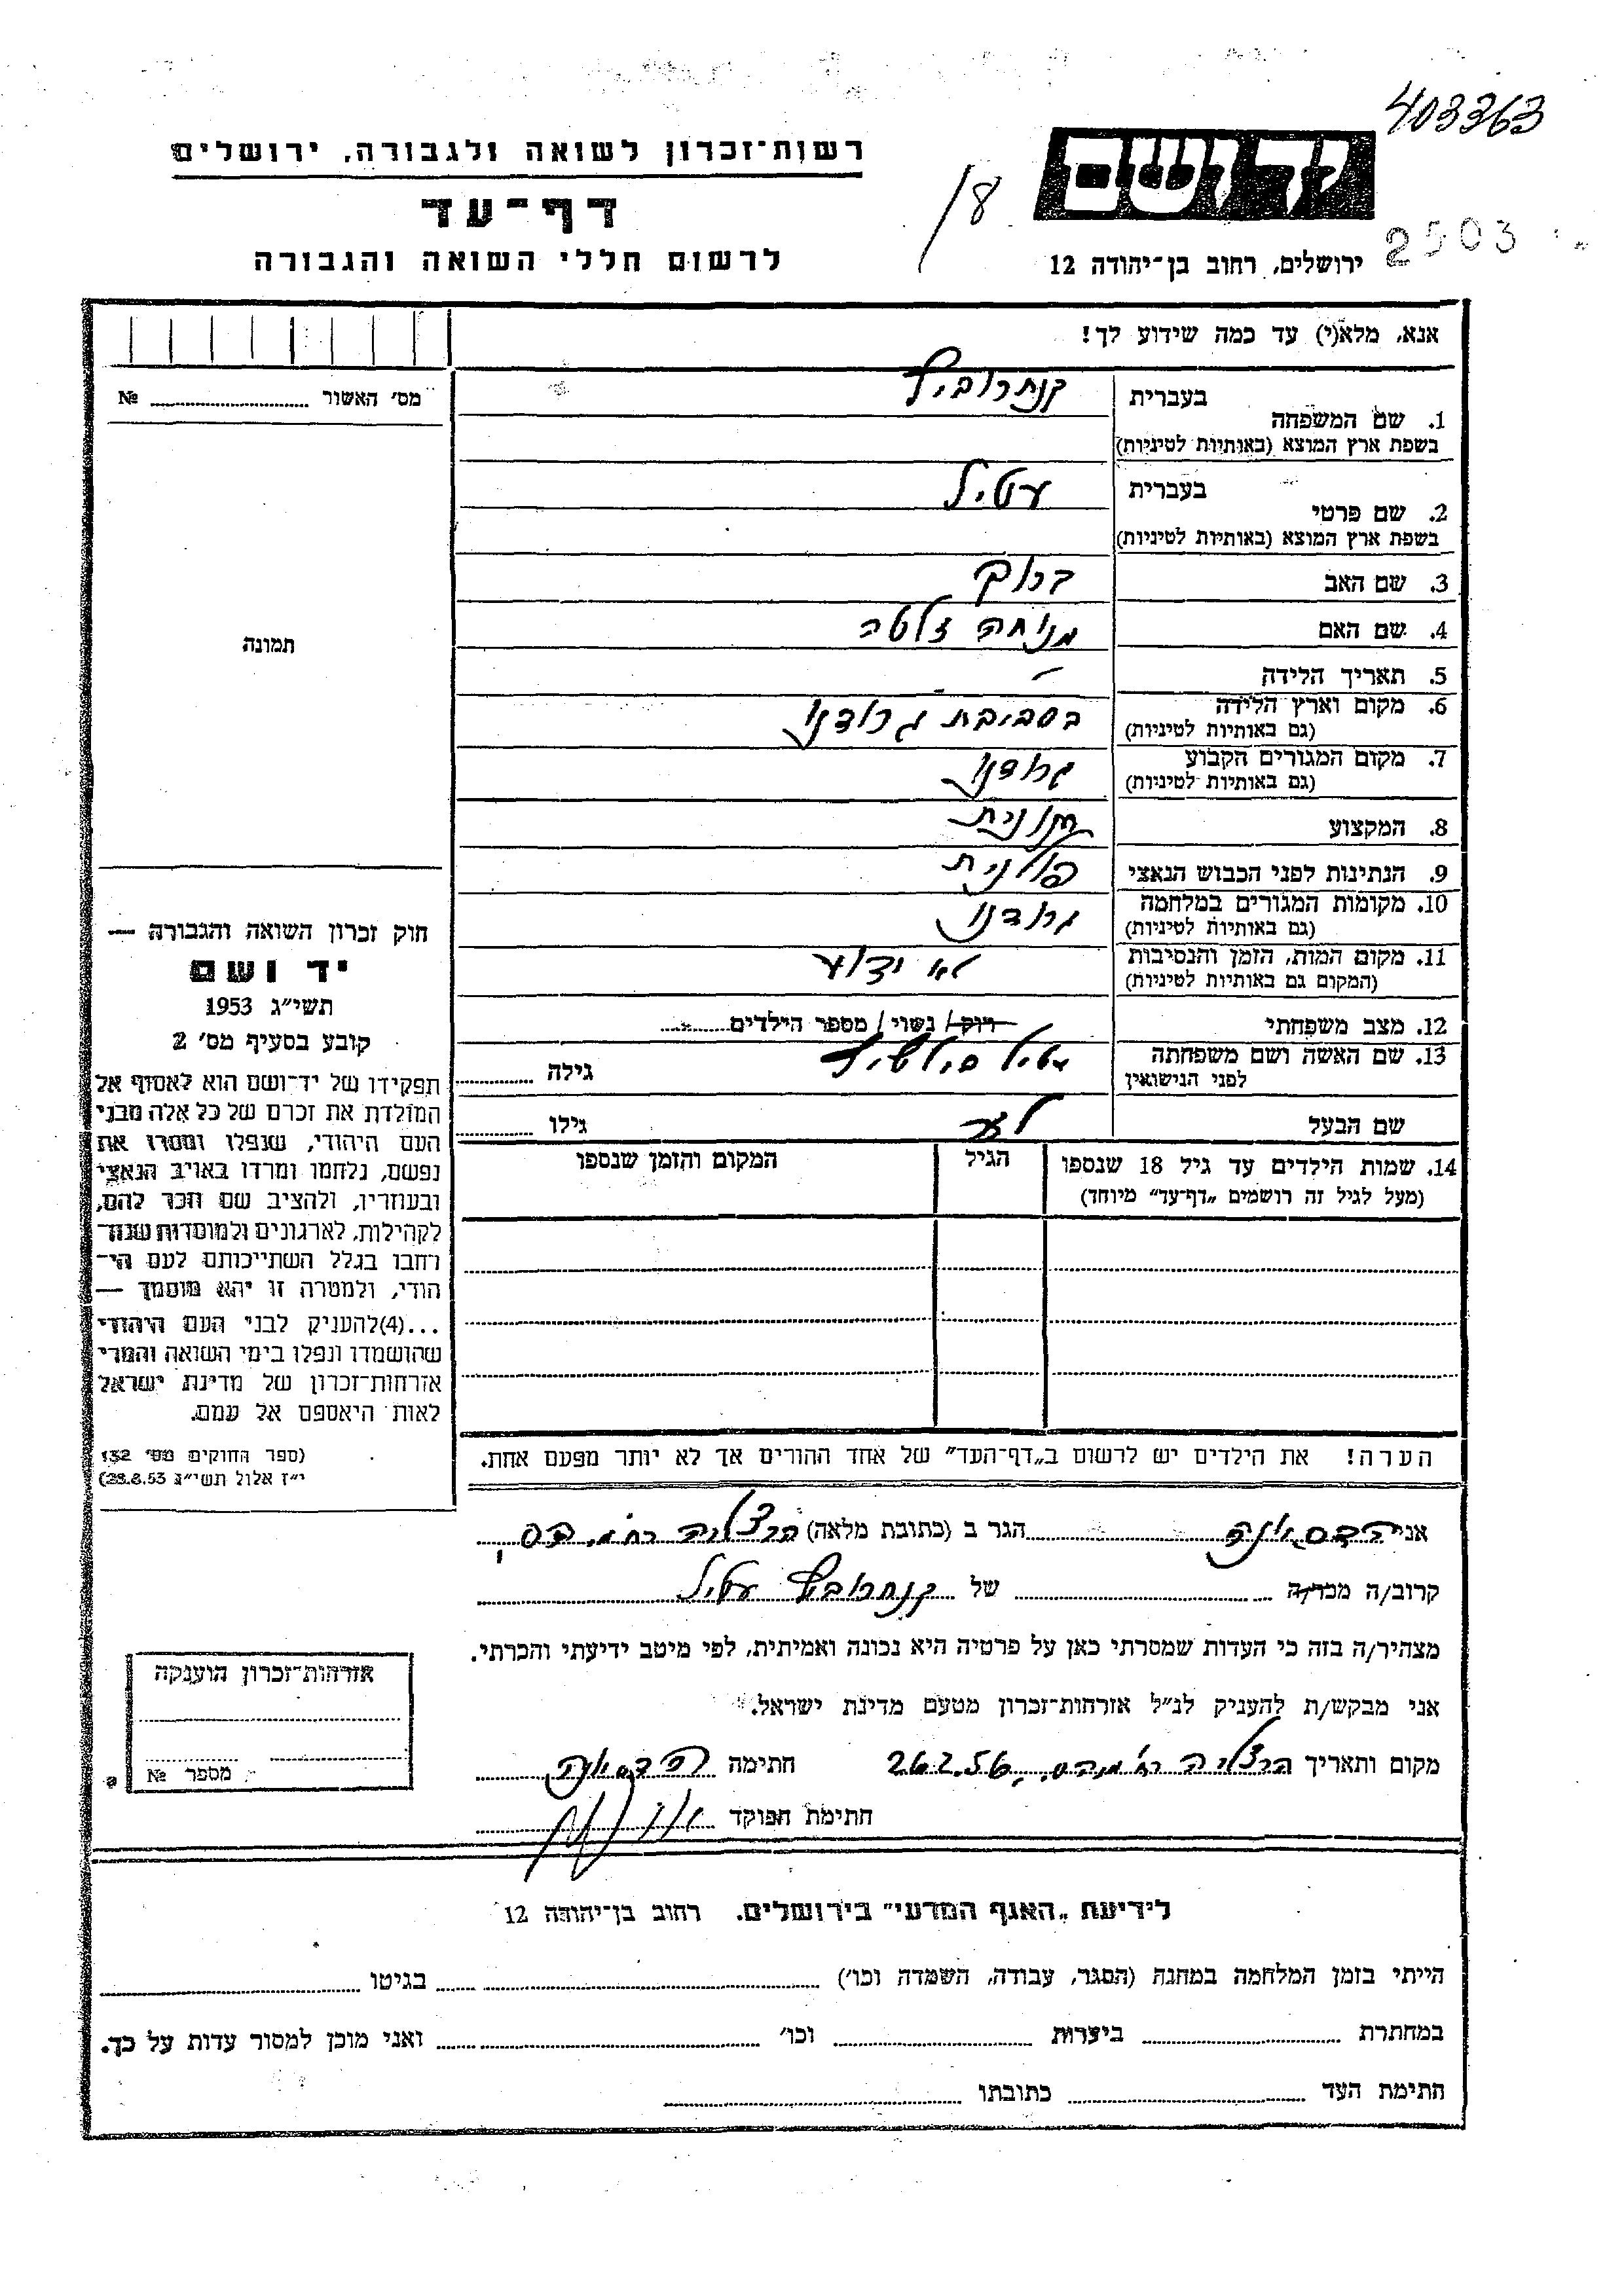 403363
רשות־זכרון לשואה ולגבורה, ירושלים
יד ושם
דף־עד
18
לרשום חללי השואה והגבורה
ירושלים, רחוב בן־יהודה 12
2503
אנא, מלא(י) עד כמה שידוע לך!
מס׳ האשור № ........
1. שם המשפחה
בעברית קנתרוביץ
בשפת ארץ המוצא (באותיות לטיניות)
2. שם פרטי
בעברית עטיל
בשפת ארץ המוצא (באותיות לטיניות)
3. שם האב ברוך
4. שם האם מנוחה זלטה
5. תאריך הלידה –
6. מקום וארץ הלידה בסביבת גרודנו
(גם באותיות לטיניות)
7. מקום המגורים הקבוע גרודנו
(גם באותיות לטיניות)
8. המקצוע חנונית
9. הנתינות לפני הכבוש הנאצי פולנית
10. מקומות המגורים במלחמה גרודנו
(גם באותיות לטיניות)
11. מקום המות, הזמן והנסיבות לא ידוע
(המקום גם באותיות לטיניות)
12. מצב משפחתי רוק/ נשוי/ מספר הילדים ........
13. שם האשה ושם משפחתה
לפני הנישואין
גילה ........
שם הבעל
גילו ........
14. שמות הילדים עד גיל 18 שנספו
(מעל לגיל זה רושמים „דף־עד״ מיוחד)
הגיל
המקום והזמן שנספו
הערה! את הילדים יש לרשום ב„דף־העד״ של אחד ההורים אך לא יותר מפעם אחת.
תמונה
חוק זכרון השואה והגבורה —
יד ושם
תשי״ג 1953
קובע בסעיף מס׳ 2
תפקידו של יד־ושם הוא לאסוף אל
המולדת את זכרם של כל אלה מבני
העם היהודי, שנפלו ומסרו את
נפשם, נלחמו ומרדו באויב הנאצי
ובעוזריו, ולהציב שם וזכר להם,
לקהילות, לארגונים ולמוסדות שנח־
רחבו בגלל השתייכותם לעם הי־
הודי, ולמטרה זו יהא מוסמך —
...(4) להעניק לבני העם היהודי
שהושמדו ונפלו בימי השואה והמרי
אזרחות־זכרון של מדינת ישראל
לאות היאספם אל עמם.
(ספר החוקים מס׳ 132
י״ז אלול תשי״ג 28.8.53)
אני הגר ב (כתובת מלאה) הרצליה
קרוב/ה מכר/ה ........ של קנתרוביץ עטיל
מצהיר/ה בזה כי העדות שמסרתי כאן על פרטיה היא נכונה ואמיתית, לפי מיטב ידיעתי והכרתי.
אני מבקש/ת להעניק לנ״ל אזרחות־זכרון מטעם מדינת ישראל.
מקום ותאריך הרצליה 26.2.56 חתימה
חתימת הפוקד
אזרחות־זכרון הוענקה
מספר №
לידיעת „האגף המדעי״ בירושלים. רחוב בן־יהודה 12
הייתי בזמן המלחמה במחנה (הסגר, עבודה, השמדה וכו׳) ........ בגיטו ........
במחתרת ........ ביערות ........ וכו׳ ........ ואני מוכן למסור עדות על כך.
חתימת העד ........ כתובתו ........